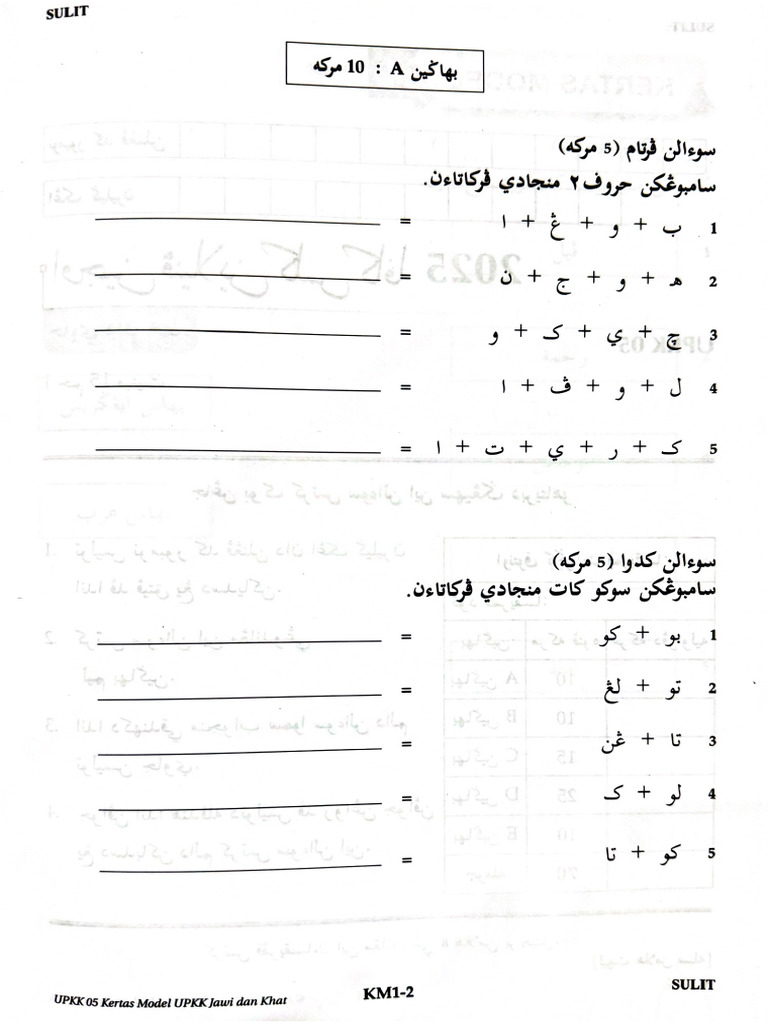 SULIT
بهاݢين A : 10 مركه
سوءالن ڤرتام (5 مركه)
سامبوڠكن حروف٢ منجادي ڤركاتاءن.
1 ب + و + ڠ + ا = ____
2 هـ + و + ج + ن = ____
3 چ + ي + ک + و = ____
4 ل + و + ڤ + ا = ____
5 ک + ر + ي + ت + ا = ____
سوءالن كدوا (5 مركه)
سامبوڠكن سوكو كات منجادي ڤركاتاءن.
1 بو + كو = ____
2 تو + لڠ = ____
3 تا + ڠن = ____
4 لو + ک = ____
5 كو + تا = ____
UPKK 05 Kertas Model UPKK Jawi dan Khat
KM1-2
SULIT